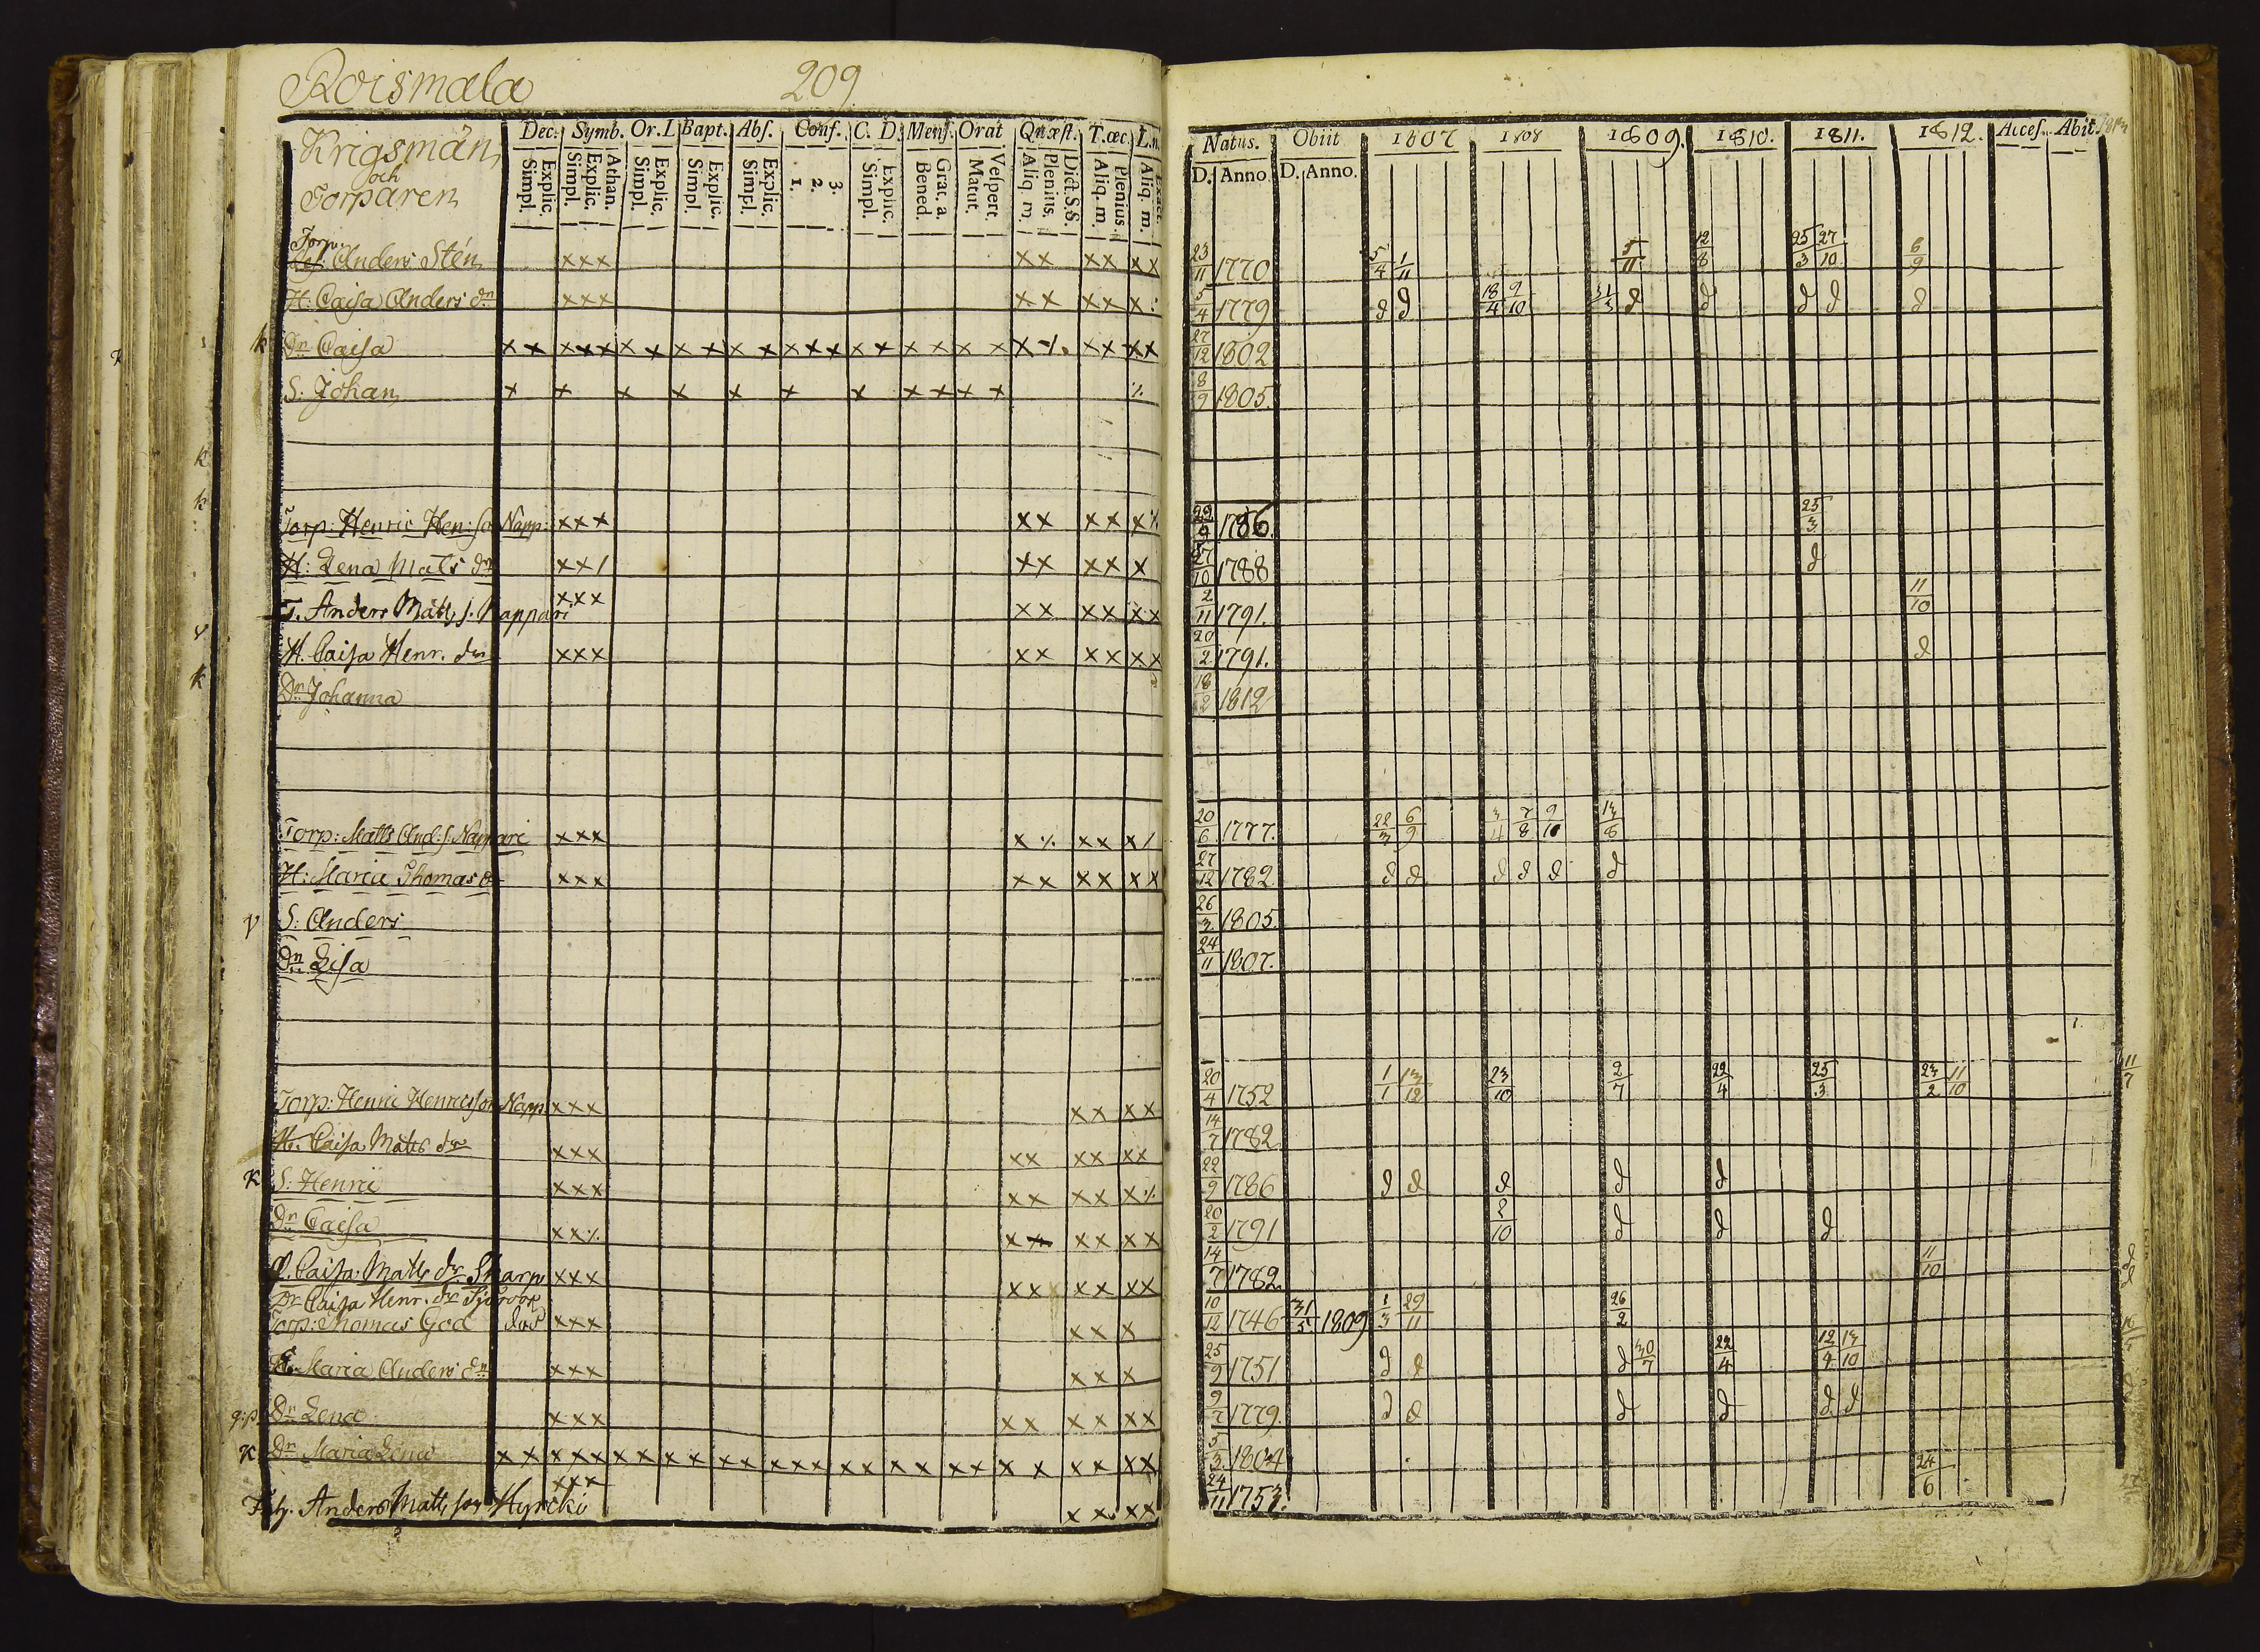 Roismala 209
Krigsmän
och
Torparen
Dec. Symb. Or. Bapt. Abs. Conf. C. D. Mens. Orat Quæst. T.œc.
Explic. Simpl. Athan. Explic. Simpl. Explic. Simpl. Explic. Simpl. Explic. Simpl. 3. 2. 1. Explic. Simpl. Grat. a. Bened. Vespert. Matut. Dict.S.S. Plenius. Aliq. m. Plenius. Aliq. m. Aliq. m.
Natus. Obiit 1807 1808 1809. 1810. 1811. 1812. Acces. Abit.
D. Anno D. Anno.
Torp.
Anders Stén xxx xx xx xx 23/11 1770 5/4 1/11 5/11 12/8 25/3 27/10 6/9
H: Caisa Anders dr xxx xx xx x: 5/4 1779 d d 18/4 9/10 d d d d d
k Dr Caisa xx xxx xx xx xx xxx xx xx xx x ·/. xx xx 27/12 1802
S. Johan x x x x x x x xx xx ·/. 8/9 1805.
Torp: Henric Hen: so Napp: xxx xx xx x 1786. 25/3
H: Lena Mats dr xx/ xx xx x 27/10 1788 d
T. Anders Matts s. Nappari xxx xx xx xx 2/11 1791. 11/10
H. Caisa Henr. dr xxx xx xx xx 20/2 1791. d
Dr Johanna 18/2 1812
Torp: Matts And: s. Nappari xxx x ·/. xx x/ 20/6 1777. 22/3 6/9 3/4 7/8 9/10 13/8
H: Maria Thomas dr xxx xx xx xx 27/12 1782 d d d d d d
V S: Anders 26/3 1805.
Dr Lisa 24/11 1807.
Torp: Henric Henricsson Napp xxx xx xx 20/4 1752 1/1 13/12 23/10 2/7 22/4 25/3 23/2 11/10 11/7
H. Caisa Matts dr xxx xx xx xx 14/7 1782
K S: Henric xxx xx xx x ·/. 22/9 1786 d d d d d
Dr Caisa xx ·/. xx xx xx 20/2 1791 2/10 d d d
Caisa Matts dr Skarp xxx xxx xx xx 14/7 1782 11/10 d
Dr Caisa Henr. dr d
Torp: Thomas God xxx xx x 10/12 1746 31/5 1809 1/3 29/11 26/2
Maria Anders dr xxx xx x 25/9 1751 d d d 30/7 22/4 12/4 13/10
Dr Lena xxx xx xx xx 9/7 1779. d d d d d d
K Dr Maria Lena xx xxx xx xx xx xxx xx xx xx xx xx xx 5/3 1804
Anders Matts son Hyrcki xxx xx xx 24/11 1753. 24/6